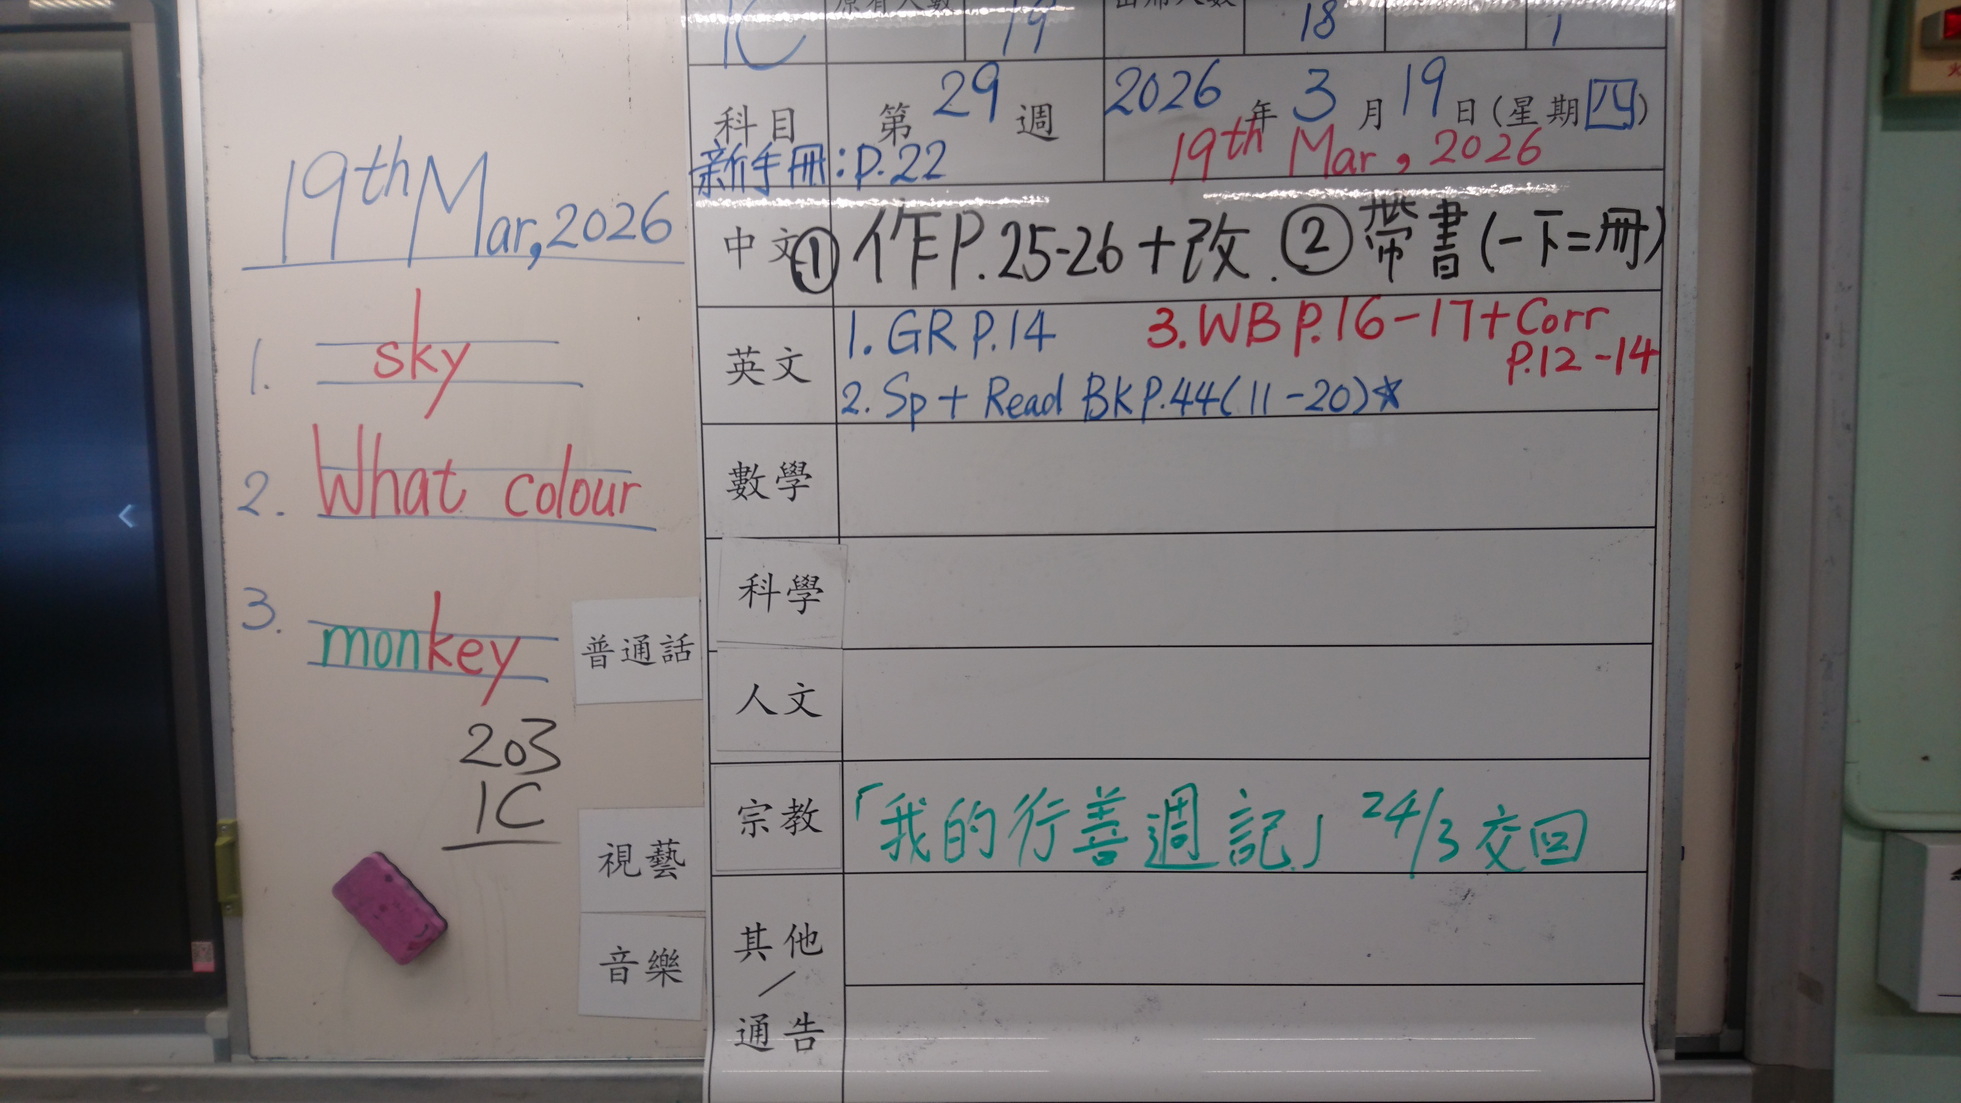 19th Mar, 2026
1. sky
2. What colour
3. monkey
203
1C
普通話
視藝
音樂
1C 原有人數 19 出席人數 18 1
科目 第29週 2026年3月19日(星期四)
新手冊:P.22 19th Mar, 2026
中文 ①作P.25-26+改. ②帶書(一下二冊)
英文 1. GR P.14 3. WB P.16-17+Corr P.12-14
2. Sp + Read BK P.44(11-20)☆
數學
科學
人文
宗教 「我的行善週記」24/3交回
其他/通告